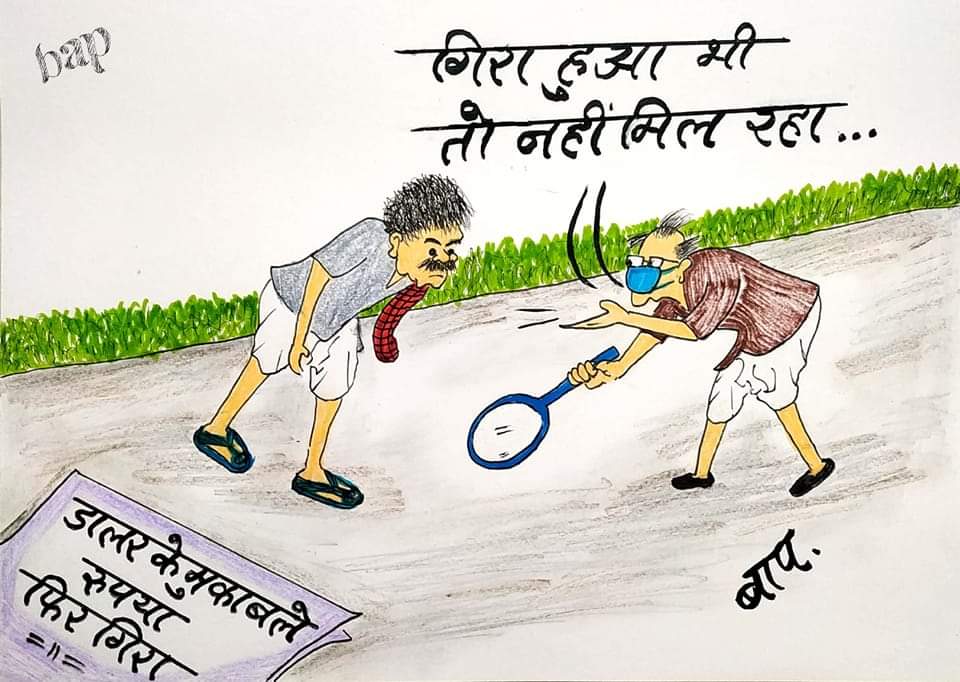 bap
गिरा हुआ भी
तो नहीं मिल रहा...
डालर के मुकाबले
रुपया
फिर गिरा
=॥=
बाप.